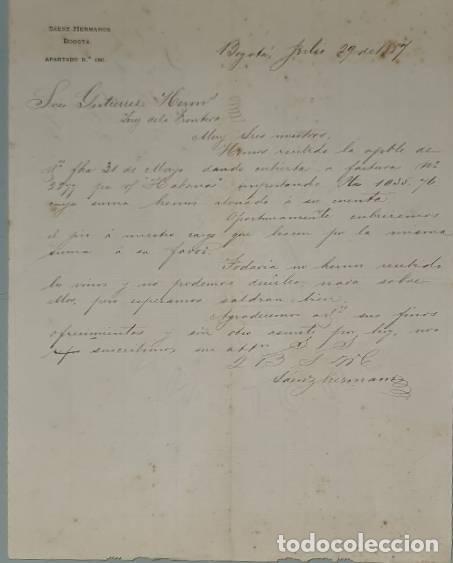 SAENZ HERMANOS
BOGOTÁ
APARTADO N.º
Bogotá, Julio 29 de 1887
Sres Gutierrez Hermos
Jerez de la Frontera
Muy Sres nuestros,
Hemos recibido la apble de
Vs fha 31 de Mayo dando cubierta a factura No
pr vr "Habana" importando Rn 1035.76
cuya suma hemos abonado á su cuenta.
Oportunamente cubriremos
el giro á nuestro cargo que hacen por la misma
suma á su favor.
Todavia no hemos recibido
los vinos y no podemos decirles nada sobre
ellos, pero esperamos saldran bien.
Agradecemos á Vs sus finos
ofrecimientos y sin otro asunto por hoy, nos
suscribimos sus S S
Q B S M
Sáenz hermanos
todocoleccion.net